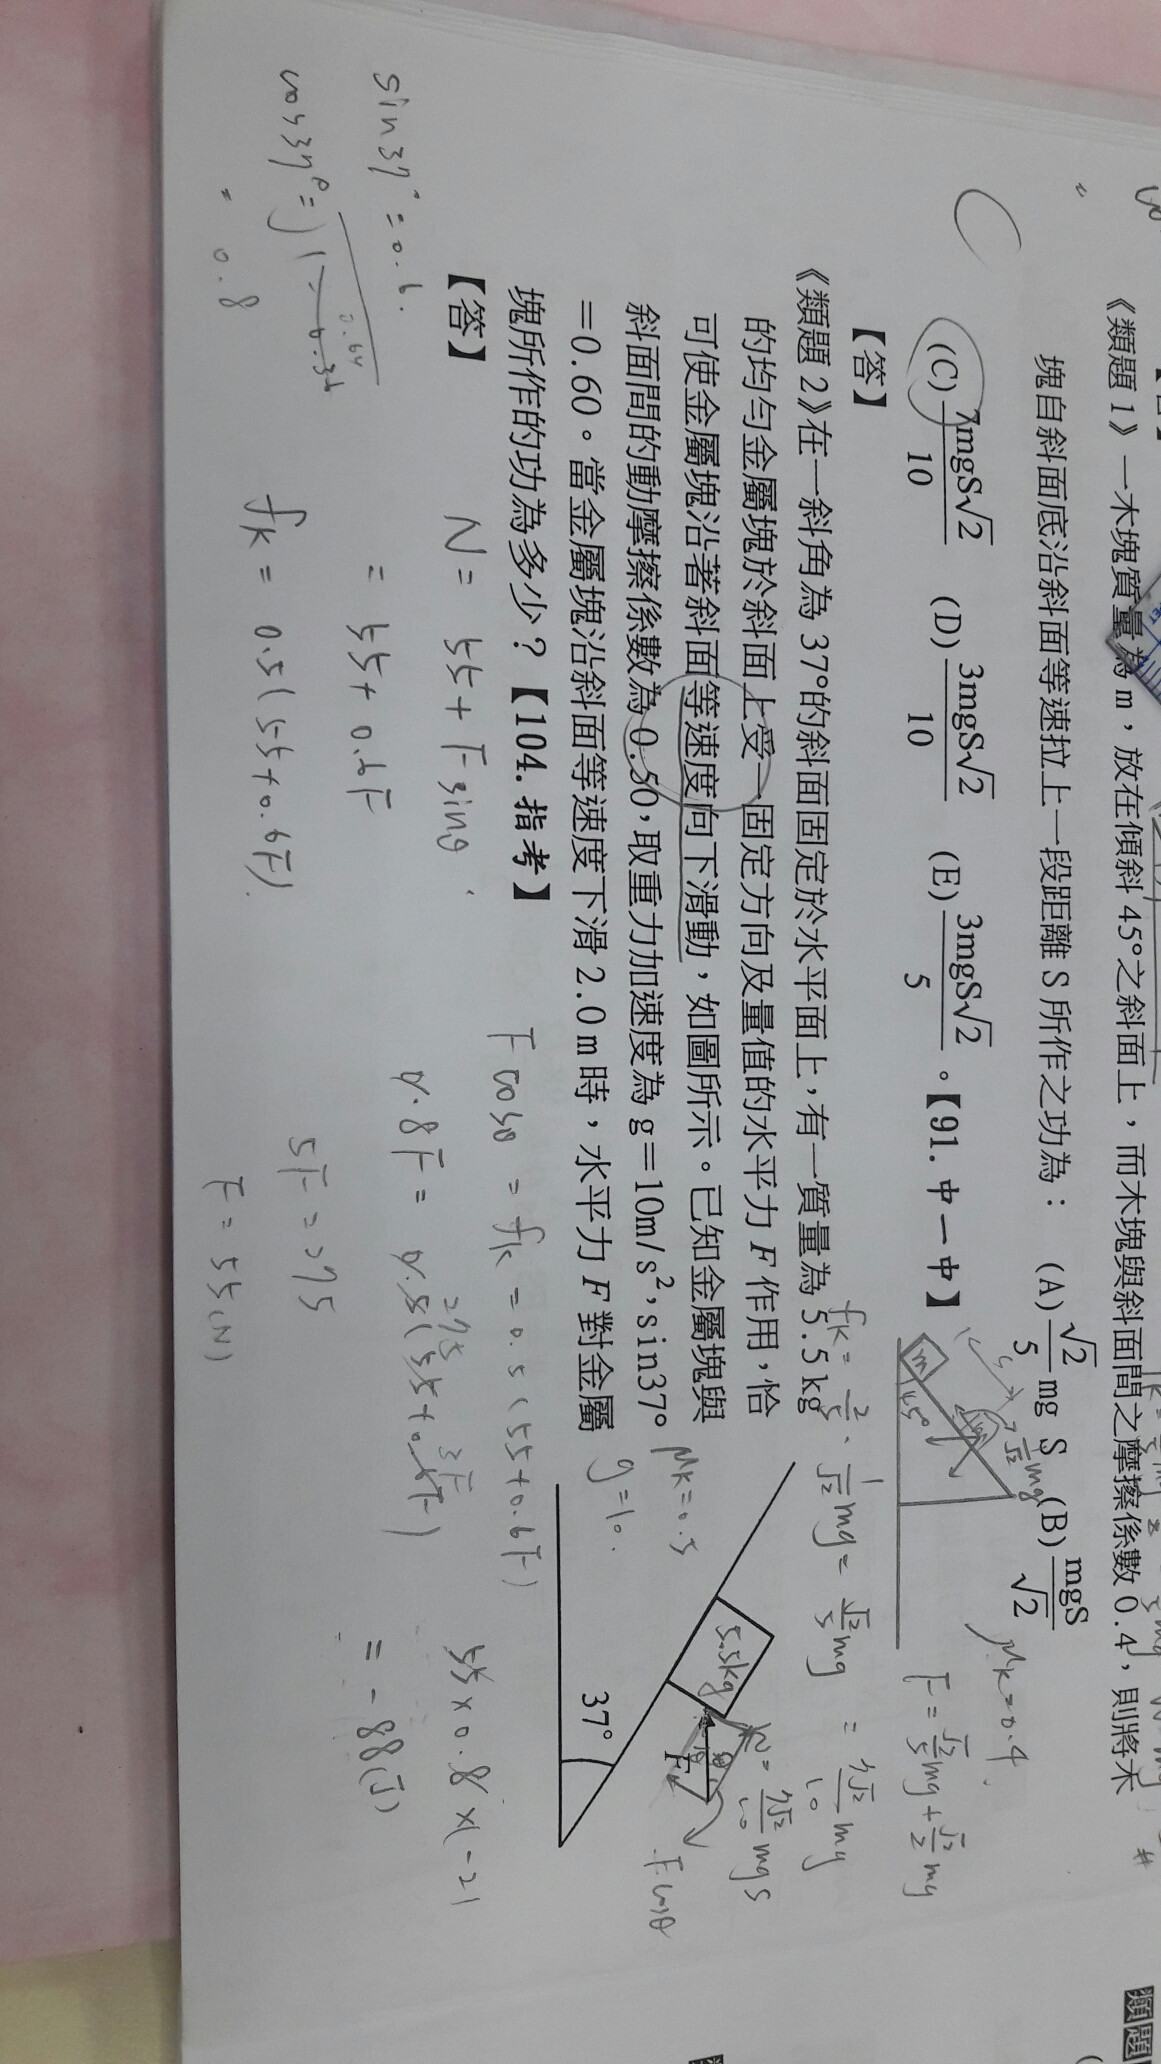 《類題1》一木塊質量為m，放在傾斜45°之斜面上，而木塊與斜面間之摩擦係數0.4，則將木
塊自斜面底沿斜面等速拉上一段距離S所作之功為： (A) √2/5 mg S (B) mgS/√2
(C) 7mgS√2/10 (D) 3mgS√2/10 (E) 3mgS√2/5 。【91.中一中】
μk=0.4
F=√2/5 mg+√2/2 mg
= 7√2/10 mg
m
45°
【答】
fk= 2/5 · 1/√2 mg = √2/5 mg
W= 7√2/10 mgs
《類題2》在一斜角為37°的斜面固定於水平面上，有一質量為5.5kg
的均勻金屬塊於斜面上受一固定方向及量值的水平力F作用，恰
可使金屬塊沿著斜面等速度向下滑動，如圖所示。已知金屬塊與
斜面間的動摩擦係數為0.50，取重力加速度為g=10m/s²，sin37°
=0.60。當金屬塊沿斜面等速度下滑2.0m時，水平力F對金屬
塊所作的功為多少？【104.指考】
μk=0.5
g=10
5.5kg
F
Fcosθ
37°
【答】
sin37°=0.6
cos37°=√1-0.36
0.64
= 0.8
N= 55+Fsinθ
= 55+0.6F
fk= 0.5(55+0.6F)
Fcosθ = fk = 0.5(55+0.6F)
0.8F= 0.5(55+0.6F)
275 3F
5F=275
F=55(N)
55×0.8×(-2)
= -88(J)
類題